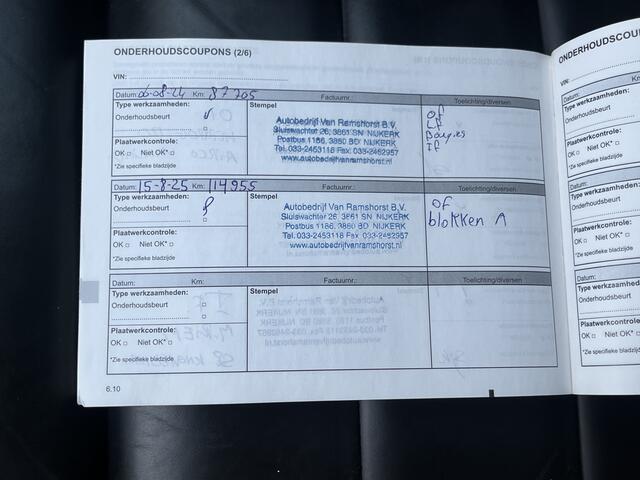 ONDERHOUDSCOUPONS (2/6)
VIN:
Datum: 06-08-24 Km: 87705 Factuurnr.: Toelichting/diversen
Type werkzaamheden:
Onderhoudsbeurt
Stempel
Autobedrijf Van Ramshorst B.V.
Sluiswachter 26, 3861 SN NIJKERK
Postbus 1186, 3860 BD NIJKERK
Tel. 033-2453118 Fax 033-2462957
www.autobedrijfvanramshorst.nl
OF
LF
Bougies
IF
Plaatwerkcontrole:
OK Niet OK*
*Zie specifieke bladzijde
Datum: 15-8-25 Km: 114955 Factuurnr.: Toelichting/diversen
Type werkzaamheden:
Onderhoudsbeurt
Stempel
Autobedrijf Van Ramshorst B.V.
Sluiswachter 26, 3861 SN NIJKERK
Postbus 1186, 3860 BD NIJKERK
Tel. 033-2453118 Fax 033-2462957
www.autobedrijfvanramshorst.nl
OF
blokken A
Plaatwerkcontrole:
OK Niet OK*
*Zie specifieke bladzijde
Datum: Km: Factuurnr.: Toelichting/diversen
Type werkzaamheden:
Onderhoudsbeurt
Stempel
Plaatwerkcontrole:
OK Niet OK*
*Zie specifieke bladzijde
6.10
ONDERHOUDSCOUPONS
VIN:
Datum:
Type werkzaamheden:
Onderhoudsbeurt
Plaatwerkcontrole:
OK Niet OK*
*Zie specifieke bladzijde
Datum:
Type werkzaamheden:
Onderhoudsbeurt
Plaatwerkcontrole:
OK Niet OK*
*Zie specifieke bladzijde
Datum:
Type werkzaamheden:
Onderhoudsbeurt
Plaatwerkcontrole:
OK Niet OK*
*Zie specifieke bladzijde